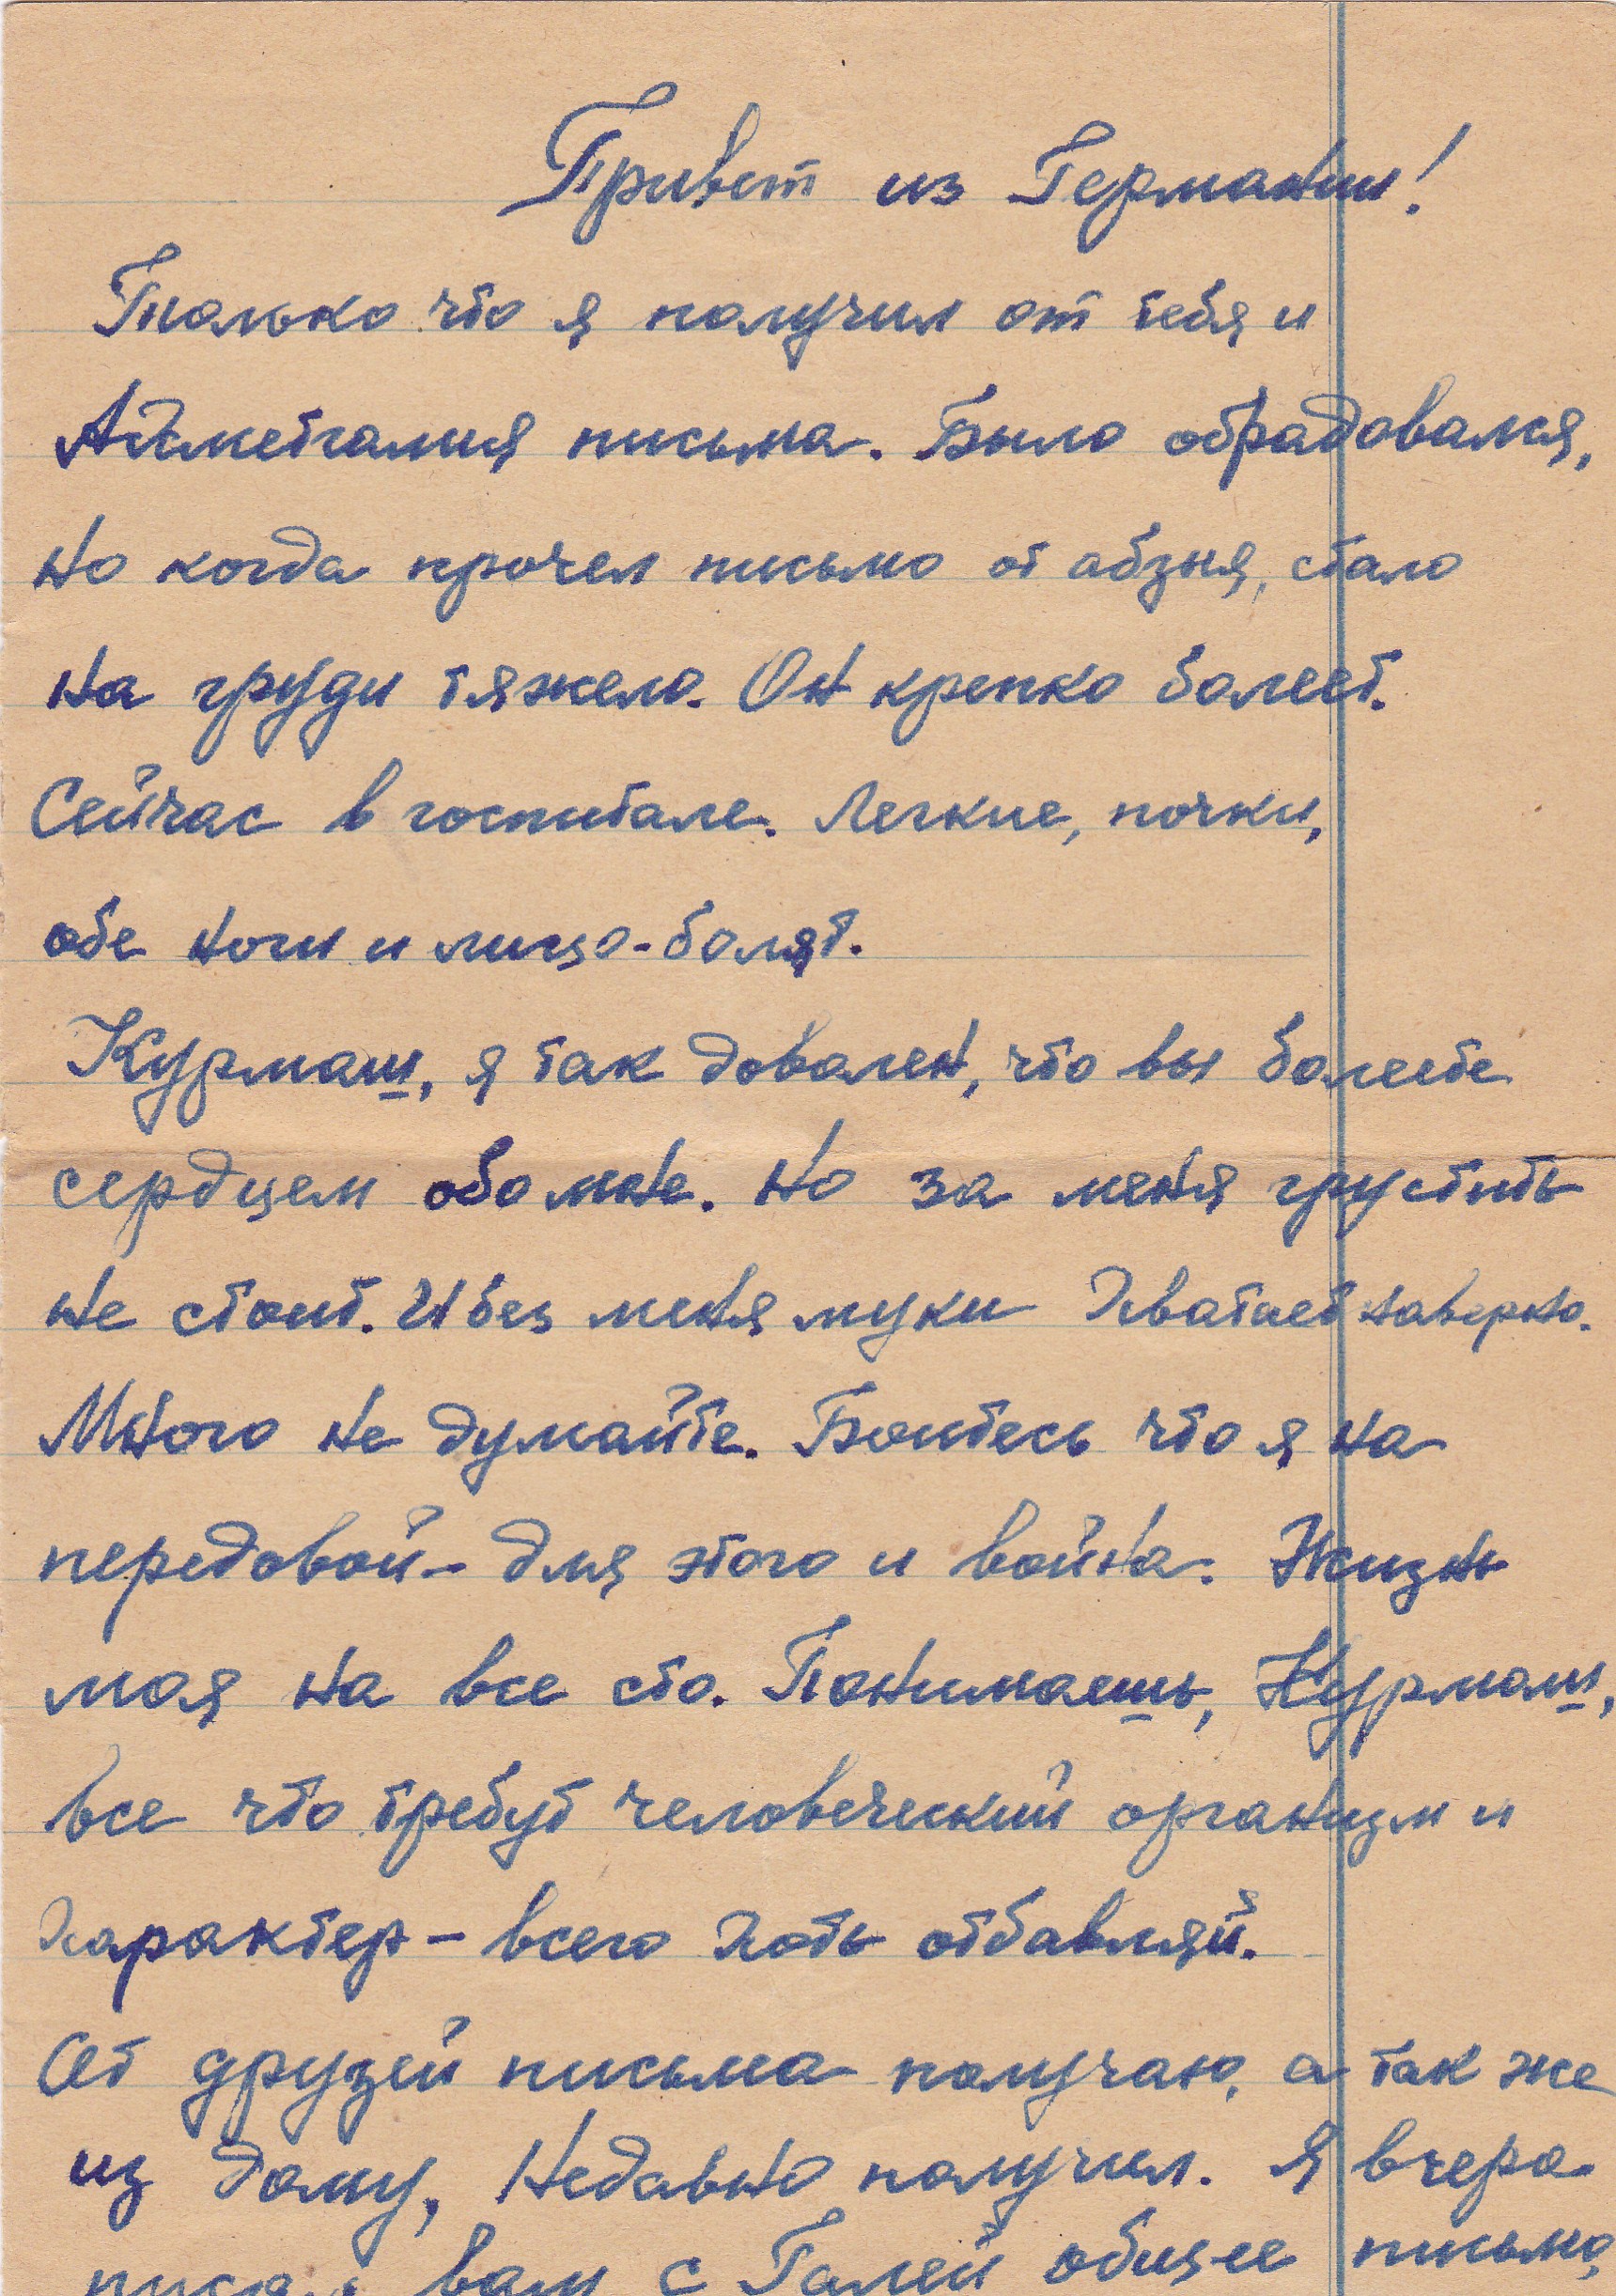 Привет из Германии!
Только что я получил от тебя и
письма. Было обрадовался,
но когда прочел письмо от абзия, стало
на груди тяжело. Он крепко болеет.
Сейчас в госпитале. Легкие, почки,
обе ноги и лицо-болят.
Курмаш, я так доволен, что вы болеете
сердцем обо мне. Но за меня грустить
не стоит. И без меня муки хватает наверно.
Много не думайте. Боитесь что я на
передовой - для этого и война. Жизнь
моя на все сто. Понимаешь, Курмаш,
все что требут человеческий организм и
характер - всего хоть отбавляй.
От друзей письма получаю, а так же
из дому, недавно получил. Я вчера
писал вам с Галей общее письмо,